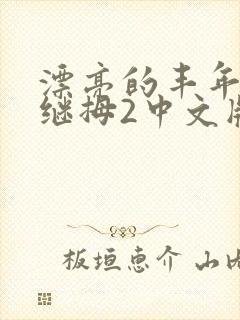 漂亮的丰年
继拇2中文版
板垣恵介 山内